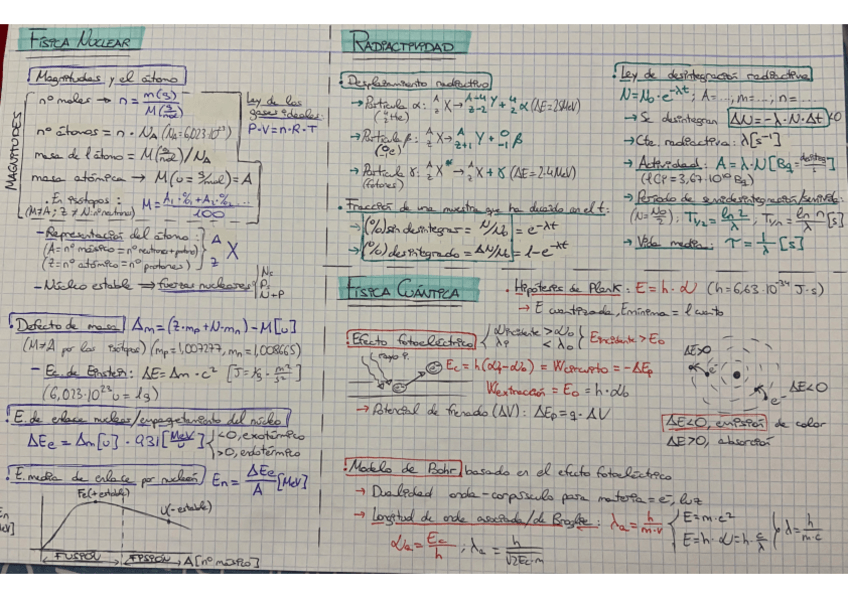 FÍSICA NUCLEAR
Magnitudes y el átomo
MAGNITUDES
nº moles → n = m(g) / M(g/mol)
Ley de los gases ideales
P·V = n·R·T
nº átomos = n · NA (NA = 6,023·10²³)
masa de 1 átomo = M(g/mol)/NA
masa atómica → M(u = g/mol) = A
En isótopos: M = A₁·%₁ + A₂·%₂ ... / 100
- Representación del átomo:
(A = nº másico = nº neutrones + protones)
(Z = nº atómico = nº protones)
A
Z X
- Núcleo estable → fuerzas nucleares
N+P
Defecto de masa Δm = (Z·mp + N·mn) - M [u]
(M≠A por los isótopos) (mp = 1,007277, mn = 1,008665)
- Ec. de Einstein: ΔE = Δm · c² [J = kg · m²/s²]
(6,023·10²³ u = 1g)
E. de enlace nuclear/empaquetamiento del núcleo
ΔEe = Δm [u] · 931 [MeV/u] <0, exotérmico
>0, endotérmico
E. media de enlace por nucleón En = ΔEe / A [MeV]
Fe (+ estable)
U (- estable)
FUSIÓN
FISIÓN
A [nº másico]
RADIACTIVIDAD
Desplazamiento radiactivo
→ Partícula α: A Z X → A-4 Z-2 Y + 4 2 α (ΔE = 25MeV)
(4 2 He)
→ Partícula β: A Z X → A Z+1 Y + 0 -1 β
→ Partícula γ: A Z X* → A Z X + γ (ΔE = 2.4MeV)
(fotones)
Fracción de una muestra que ha decaído en el t:
→ (%) sin desintegrar = N/N₀ = e^-λt
→ (%) desintegrado = ΔN/N₀ = 1 - e^-λt
Ley de desintegración radiactiva
N = N₀ · e^-λt ; A = ..., m = ...; n = ...
→ Se desintegran ΔN = -λ · N · Δt <0
→ Cte. radiactiva: λ [s⁻¹]
→ Actividad: A = λ·N [Bq = desinteg/s]
(1Ci = 3,67·10¹⁰ Bq)
→ Periodo de semidesintegración/semivida:
(N = N₀/2); T1/2 = ln 2 / λ ; T1/n = ln n / λ [s]
→ Vida media: τ = 1/λ [s]
FÍSICA CUÁNTICA
Hipótesis de Plank: E = h · ν (h = 6,63·10⁻³⁴ J·s)
→ E cuantizada, Emínima = 1 cuanto
Efecto fotoeléctrico
νincidente > ν₀
< λ₀
Eincidente > E₀
Ec = h(νi - ν₀) = -ΔEp
Wextracción = E₀ = h·ν₀
→ Potencial de frenado (ΔV): ΔEp = q · ΔV
ΔE>0
e⁻
ΔE<0
ΔE<0, emisión de color
ΔE>0, absorción
Modelo de Bohr basado en el efecto fotoeléctrico
→ Dualidad onda-corpúsculo para materia = e⁻, luz
→ Longitud de onda asociada/de Broglie: λa = h / m·v
E = m·c²
E = h · ν = h · c/λ
λ = h / m·c
νa = Ec / h ; λa = h / √2Ec·m